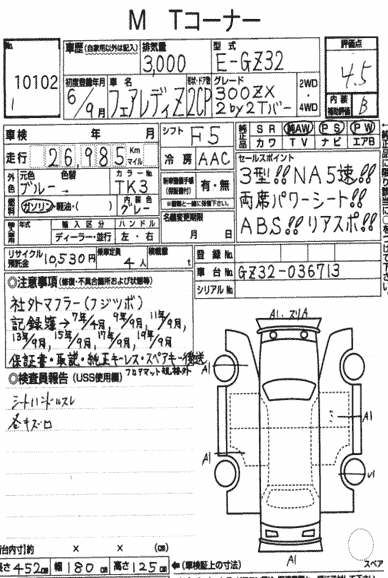 M Tコーナー
No. 10102
1
車歴 (自家用以外は記入)
排気量 3,000
型式 E-GZ32
評価点 4.5
内装補助評価 B
初度登録年月 6/9月
車名 フェアレディZ
形状・ドア数 2CP
グレード 300ZX
2by2Tバー
2WD・4WD
車検 年 月
走行 26,985 Km マイル
シフト F5
冷房 AAC
純正品 SR 純AW PS PW
カワ TV ナビ エアB
外色 元色 ブルー→ 色替
カラーNo. TK3
内装色 グレー
燃料 ガソリン・軽油・( )
有・無
セールスポイント
3型!! NA5速!!
両席パワーシート!!
ABS!! リアスポ!!
名義変更期限
月 日
年式 輸入区分 ハンドル
ディーラー・並行 左・右
リサイクル預託金 10,530円
乗車定員 4人
積載量 t
登録No.
車台No. GZ32-036713
シリアルNo.
◎注意事項 (修復・不具合箇所および状態等)
社外マフラー(フジツボ)
記録簿→7年/4月, 9年/9月, 11年/9月,
13年/9月, 15年/9月, 17年/9月, 19年/9月
保証書・取説・純正キーレス・スペアキー後送
◎検査員報告 (USS使用欄)
フロアマット
シートハンドルスレ
各キズ
A1
A1
A1
A1
A1
(荷台内寸)約 × × (cm)
長さ 452cm 幅 180cm 高さ 125cm
←(車検証上の寸法)
スペア